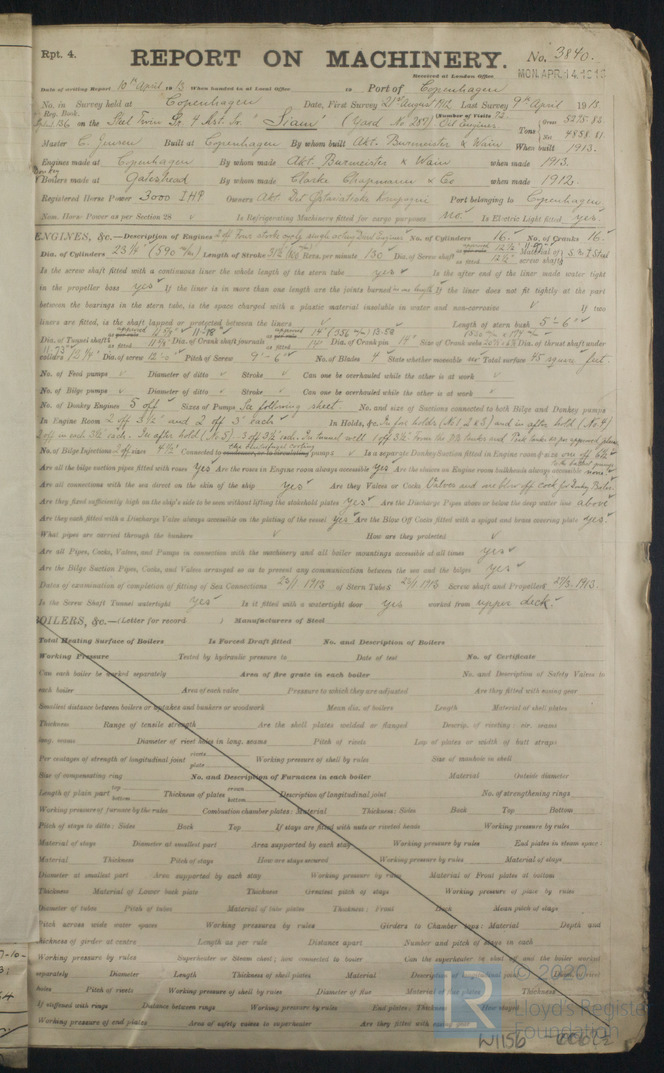 Rpt. 4.
REPORT ON MACHINERY.
No. 3840.
Received at London Office
MON. APR. 14 1913
Date of writing Report 10th April 1913 When handed in at Local Office to Port of Copenhagen
No. in Survey held at Copenhagen Date, First Survey 21st August 1912 Last Survey 9th April 1913
Reg. Book.
(Number of Visits 72
on the Steel Twin Sc. "Siam" (Yard No 289) Oil Engines
Tons Gross
Net
Master C. Jensen Built at Copenhagen By whom built Akt. Burmeister & Wain When built 1913.
Engines made at Copenhagen By whom made Akt. Burmeister & Wain when made 1913.
Boilers made at Gateshead By whom made Clarke Chapman & Co when made 1912.
Registered Horse Power 3000 IHP Owners Akt. Det Østasiatiske Kompagni Port belonging to Copenhagen
Nom. Horse Power as per Section 28 Is Refrigerating Machinery fitted for cargo purposes no. Is Electric Light fitted yes.
ENGINES, &c.—Description of Engines No. of Cylinders 16. No. of Cranks 16.
Dia. of Cylinders 23 1/4" (590 m/m) Length of Stroke Revs. per minute 130 Dia. of Screw shaft Material of screw shaft
Is the screw shaft fitted with a continuous liner the whole length of the stern tube yes Is the after end of the liner made water tight
in the propeller boss yes If the liner is in more than one length are the joints burned If the liner does not fit tightly at the part
between the bearings in the stern tube, is the space charged with a plastic material insoluble in water and non-corrosive If two
liners are fitted, is the shaft lapped or protected between the liners Length of stern bush 5'-6"
Dia. of Tunnel shaft Dia. of Crank shaft journals Dia. of Crank pin 14" Size of Crank webs Dia. of thrust shaft under
collars Dia. of screw 12'-0" Pitch of Screw 9'-6" No. of Blades 4 State whether moveable no Total surface 45 square feet.
No. of Feed pumps Diameter of ditto Stroke Can one be overhauled while the other is at work
No. of Bilge pumps Diameter of ditto Stroke Can one be overhauled while the other is at work
No. of Donkey Engines 5 off Sizes of Pumps See following sheet No. and size of Suctions connected to both Bilge and Donkey pumps
In Engine Room 2 off 3 1/2" and 2 off 3" each In Holds, &c. In for holds (No 1, 2 & 3) and in after hold (No 4)
2 off in each 3 1/2" each. In after hold (No 5) 3 off 3 1/2" each. In tunnel well 1 off 3 1/2"
No. of Bilge Injections sizes Connected to pumps Is a separate Donkey Suction fitted in Engine room & size
Are all the bilge suction pipes fitted with roses yes Are the roses in Engine room always accessible yes Are the sluices on Engine room bulkheads always accessible
Are all connections with the sea direct on the skin of the ship yes Are they Valves or Cocks Valves and one blow off cock for Donkey Boiler.
Are they fixed sufficiently high on the ship's side to be seen without lifting the stokehold plates yes Are the Discharge Pipes above or below the deep water line above
Are they each fitted with a Discharge Valve always accessible on the plating of the vessel yes Are the Blow Off Cocks fitted with a spigot and brass covering plate yes
What pipes are carried through the bunkers How are they protected
Are all Pipes, Cocks, Valves, and Pumps in connection with the machinery and all boiler mountings accessible at all times yes
Are the Bilge Suction Pipes, Cocks, and Valves arranged so as to prevent any communication between the sea and the bilges yes
Dates of examination of completion of fitting of Sea Connections 23/1 1913 of Stern Tube 23/1 1913 Screw shaft and Propeller 27/3 1913.
Is the Screw Shaft Tunnel watertight yes Is it fitted with a watertight door yes worked from upper deck.
BOILERS, &c.—(Letter for record ) Manufacturers of Steel
Total Heating Surface of Boilers Is Forced Draft fitted No. and Description of Boilers
Working Pressure Tested by hydraulic pressure to Date of test No. of Certificate
Can each boiler be worked separately Area of fire grate in each boiler No. and Description of Safety Valves to
each boiler Area of each valve Pressure to which they are adjusted Are they fitted with easing gear
Smallest distance between boilers or uptakes and bunkers or woodwork Mean dia. of boilers Length Material of shell plates
Thickness Range of tensile strength Are the shell plates welded or flanged Descrip. of riveting: cir. seams
long. seams Diameter of rivet holes in long. seams Pitch of rivets Lap of plates or width of butt straps
Per centages of strength of longitudinal joint rivets plate Working pressure of shell by rules Size of manhole in shell
Size of compensating ring No. and Description of Furnaces in each boiler Material Outside diameter
Length of plain part top bottom Thickness of plates crown bottom Description of longitudinal joint No. of strengthening rings
Working pressure of furnace by the rules Combustion chamber plates: Material Thickness: Sides Back Top Bottom
Pitch of stays to ditto: Sides Back Top If stays are fitted with nuts or riveted heads Working pressure by rules
Material of stays Diameter at smallest part Area supported by each stay Working pressure by rules End plates in steam space:
Material Thickness Pitch of stays How are stays secured Working pressure by rules Material of stays
Diameter at smallest part Area supported by each stay Working pressure by rules Material of Front plates at bottom
Thickness Material of Lower back plate Thickness Greatest pitch of stays Working pressure of plate by rules
Diameter of tubes Pitch of tubes Material of tube plates Thickness: Front Back Mean pitch of stays
Pitch across wide water spaces Working pressures by rules Girders to Chamber tops: Material Depth and
thickness of girder at centre Length as per rule Distance apart Number and pitch of stays in each
Working pressure by rules Superheater or Steam chest; how connected to boiler Can the superheater be shut off and the boiler worked
separately Diameter Length Thickness of shell plates Material Description of longitudinal joint Diam. of rivet
holes Pitch of rivets Working pressure of shell by rules Diameter of flue Material of flue plates Thickness
If stiffened with rings Distance between rings Working pressure by rules End plates: Thickness How stayed
Working pressure of end plates Area of safety valves to superheater Are they fitted with easing gear
© 2020
Lloyd's Register
Foundation
LR
W1156